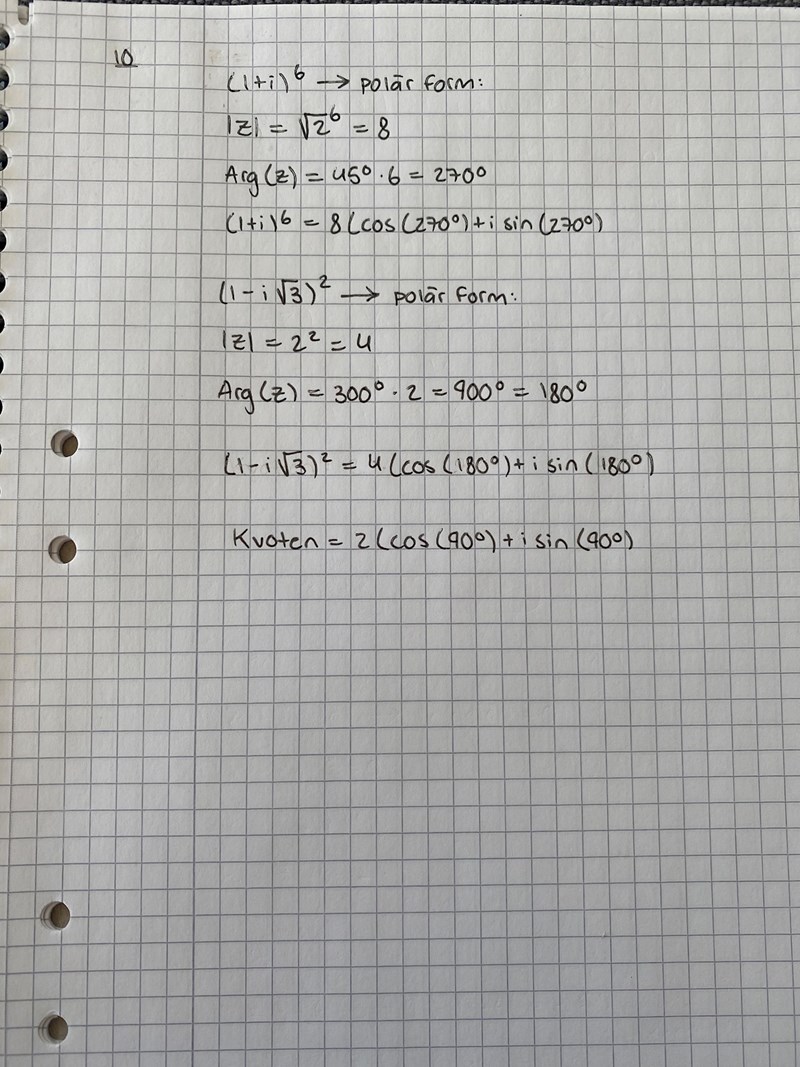 10
(1+i)⁶ → polär form:
|z| = √2⁶ = 8
Arg(z) = 45° · 6 = 270°
(1+i)⁶ = 8(cos(270°)+i sin(270°)
(1-i√3)² → polär form:
|z| = 2² = 4
Arg(z) = 300° · 2 = 900° = 180°
(1-i√3)² = 4(cos(180°)+i sin(180°)
Kvoten = 2(cos(90°)+i sin(90°)